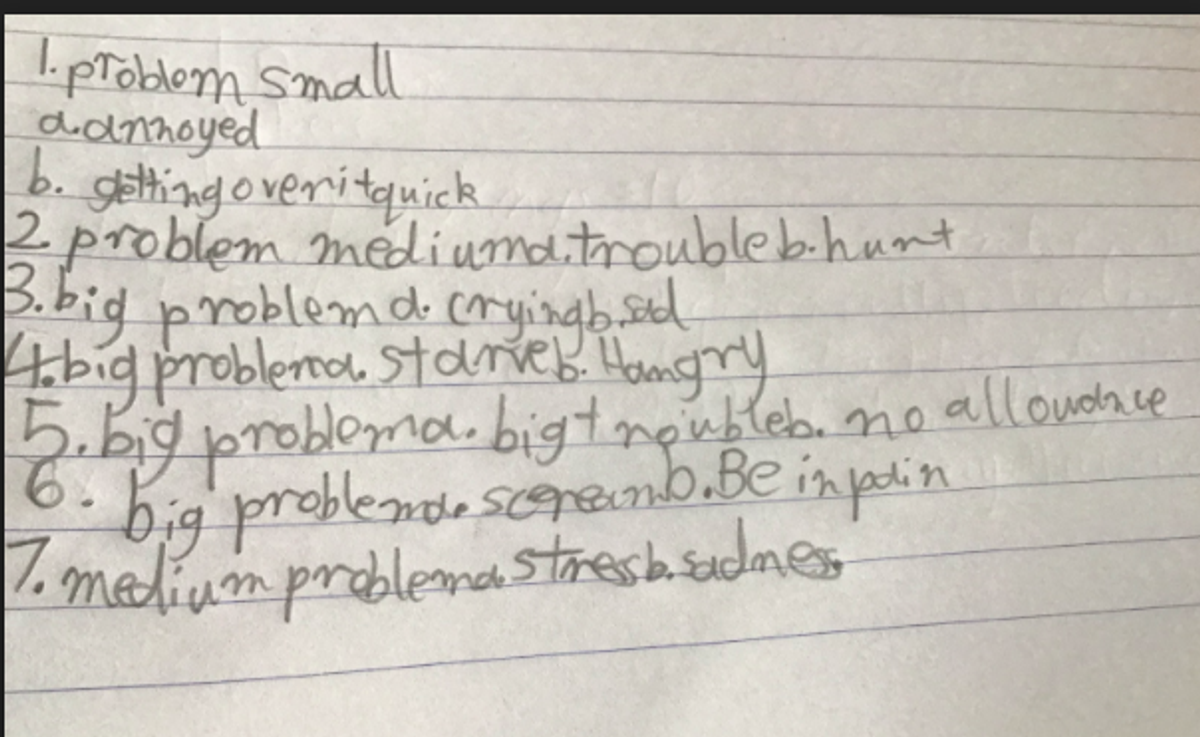 1. problom small
a. annoyed
b. getting over it quick
2 problem medium a. trouble b. hurt
3. big problem a. crying b. sad
4. big problem a. starve b. Hangry
5. big problem a. big trouble b. no allowance
6. big problem a. scream b. Be in pain
7. medium problem a. stress b. sadness